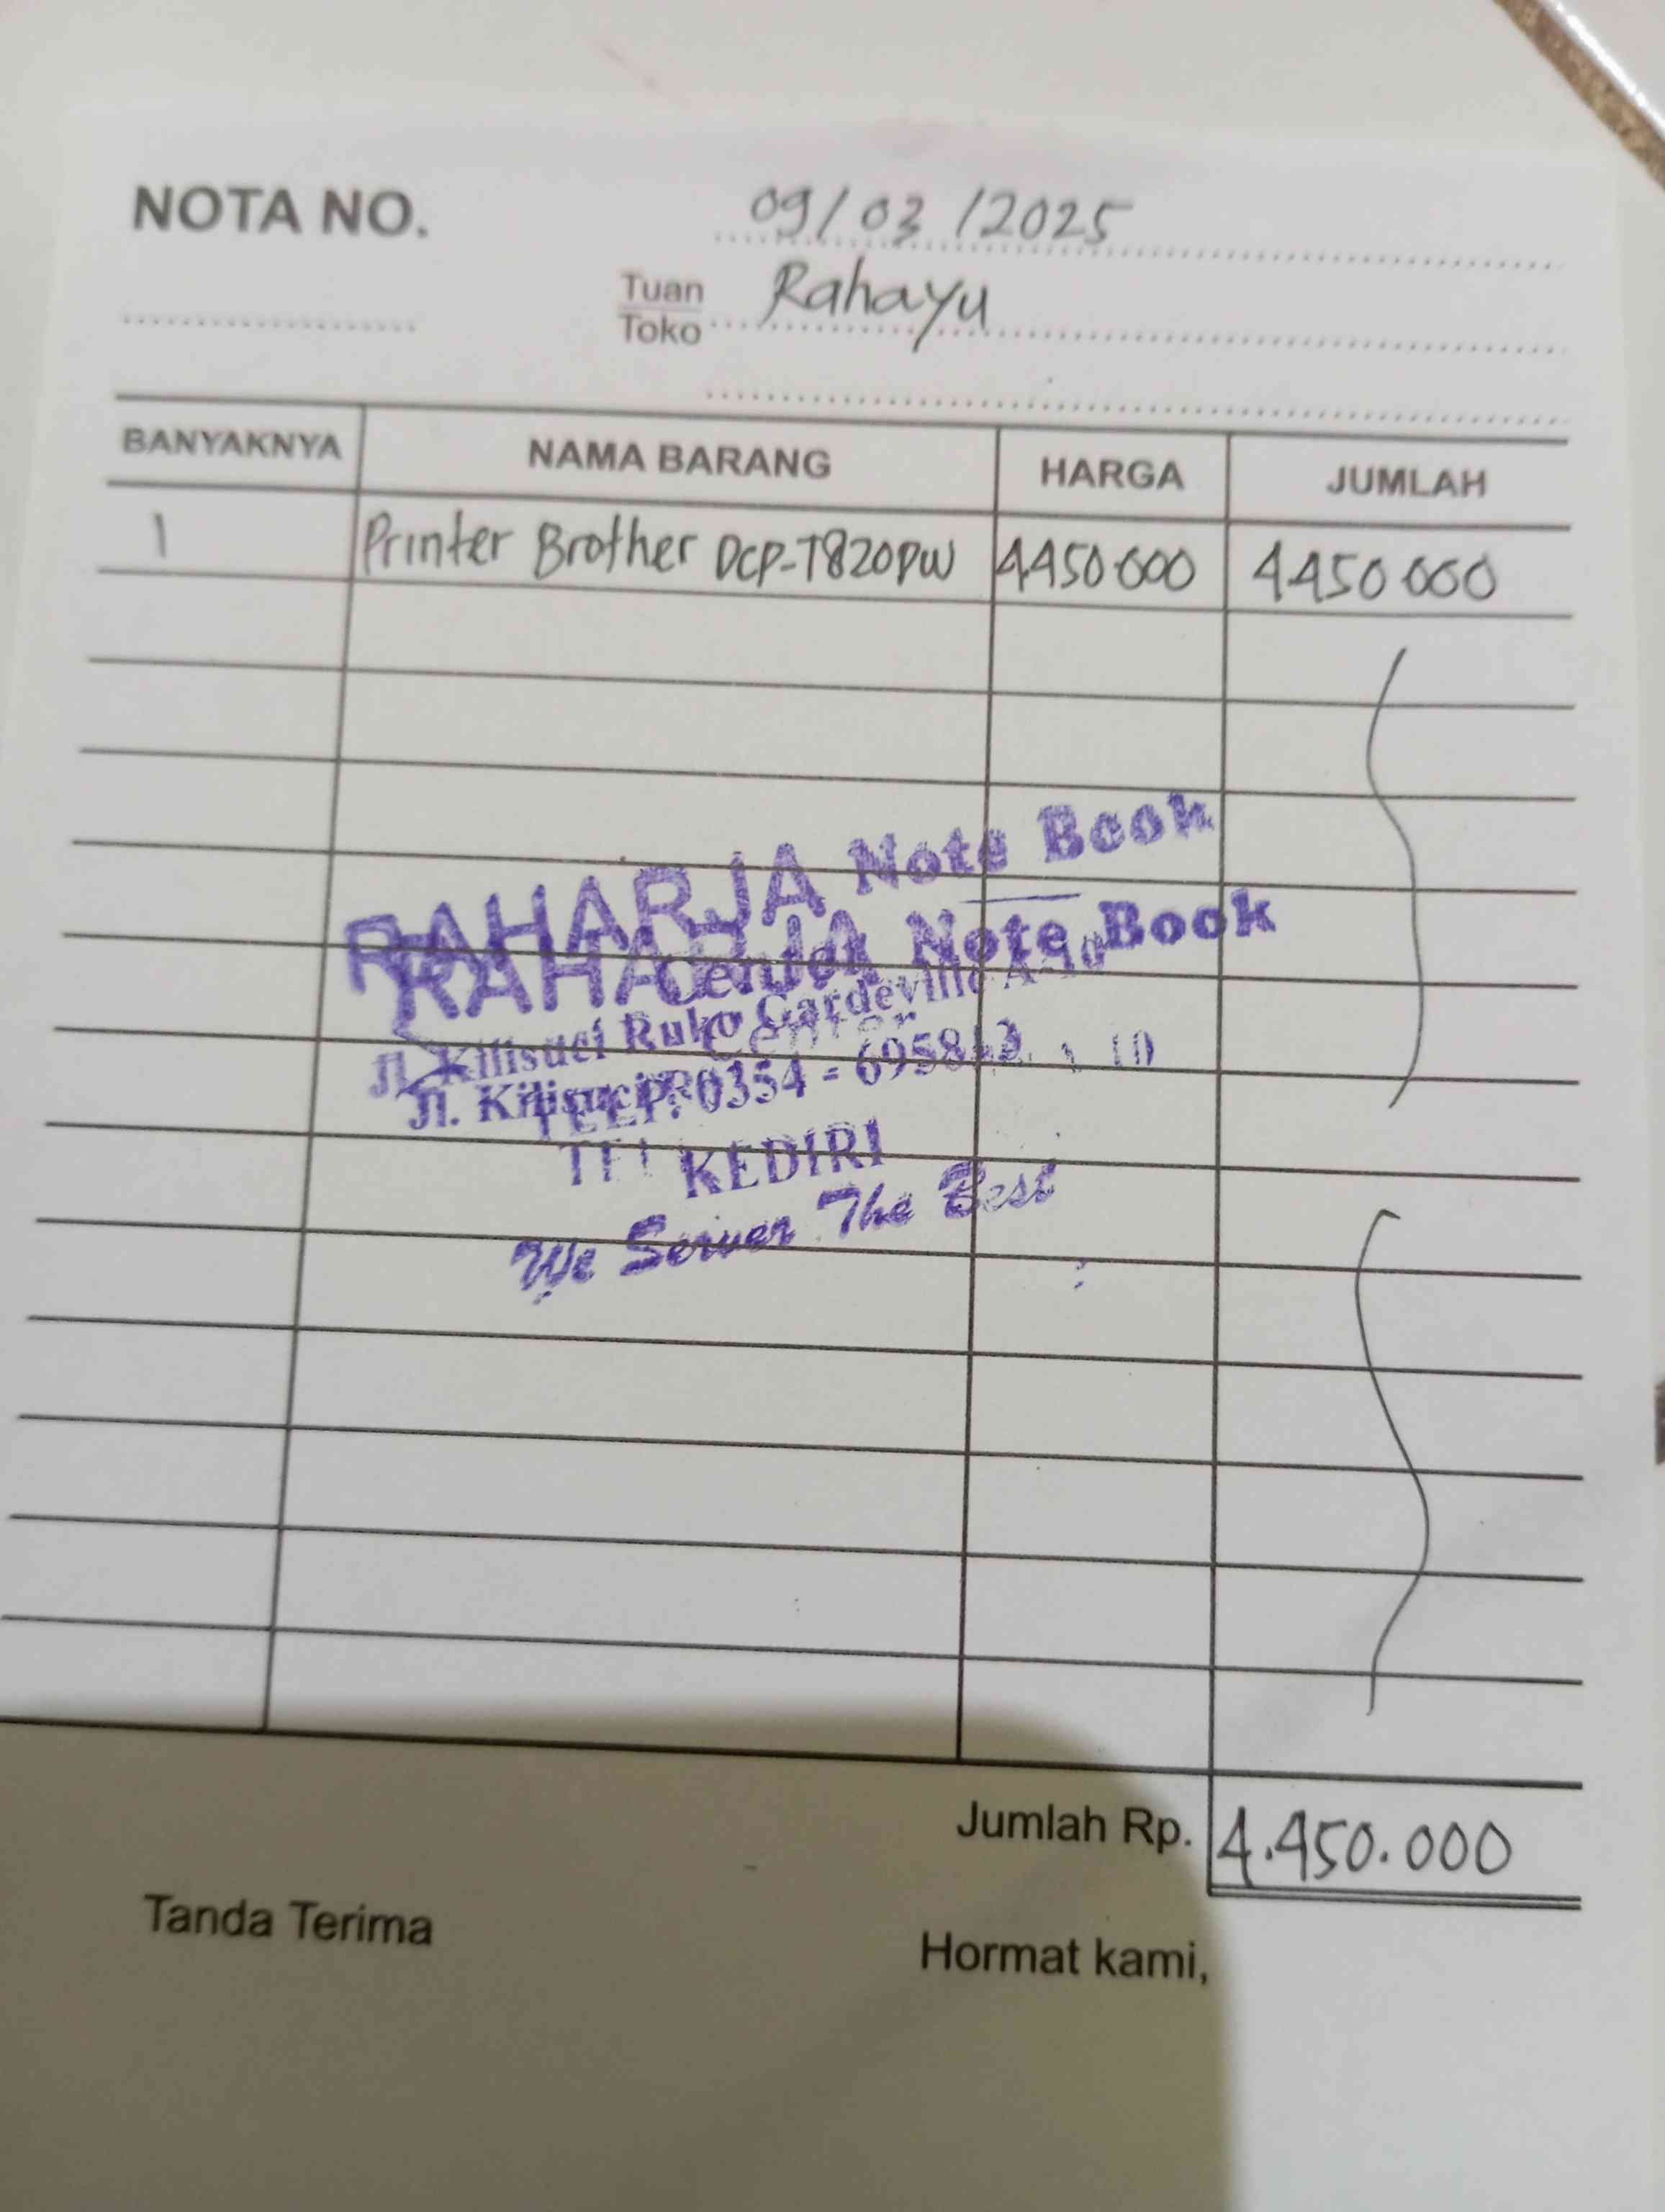 NOTA NO.
09/03/2025
Tuan
Toko
Rahayu
BANYAKNYA NAMA BARANG HARGA JUMLAH
1 Printer Brother DCP-T820DW 4450.000 4450 000
RAHARJA Note Book
RAHARJA Note Book
Center
Jl. Kilisuci Ruko Gardeville A-10
Jl. Kilisuci
TELP. 0354 -
KEDIRI
We Server The Best
Jumlah Rp. 4.450.000
Tanda Terima
Hormat kami,